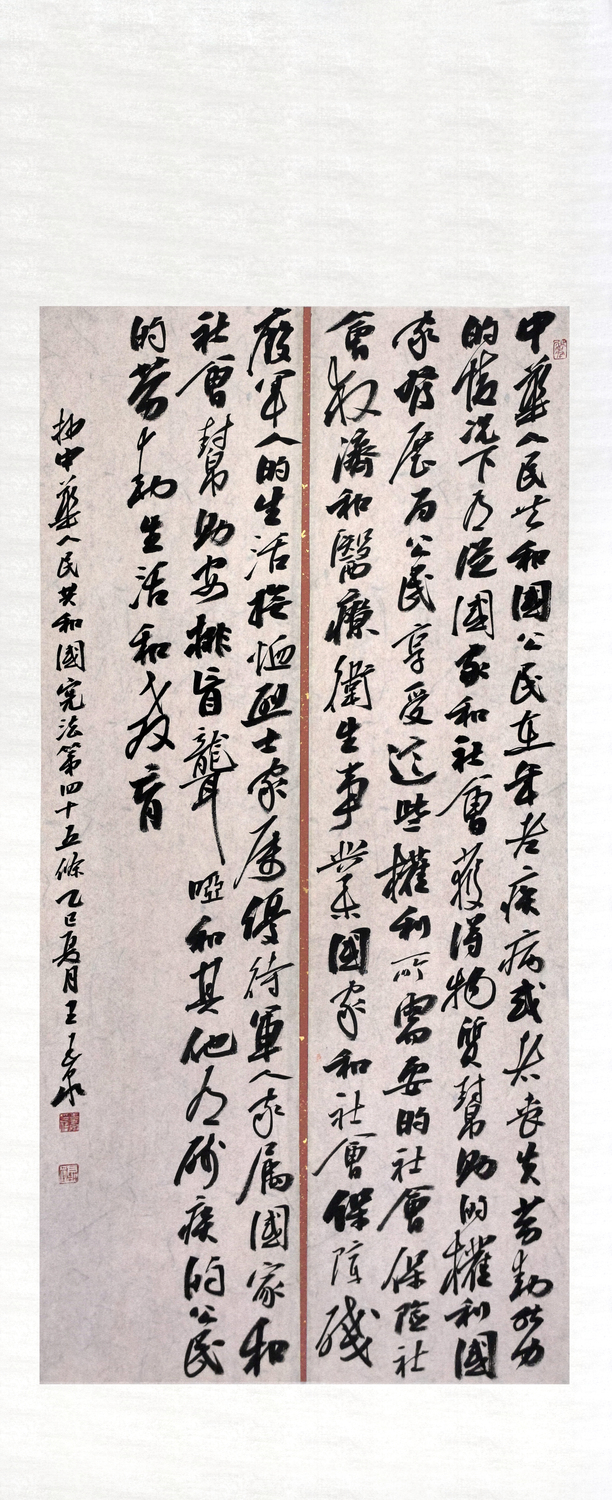 中華人民共和國公民在年老疾病或者喪失劳動能力
的情况下有從國家和社會獲得物質幫助的權利國
家發展為公民享受這些權利所需要的社會保險社
會救濟和醫療衛生事業國家和社會保障殘
廢軍人的生活撫恤烈士家属優待軍人家属國家和
社會幫助安排盲聾啞和其他有殘疾的公民
的劳動生活和教育
抄中華人民共和國憲法第四十五條乙巳夏月王